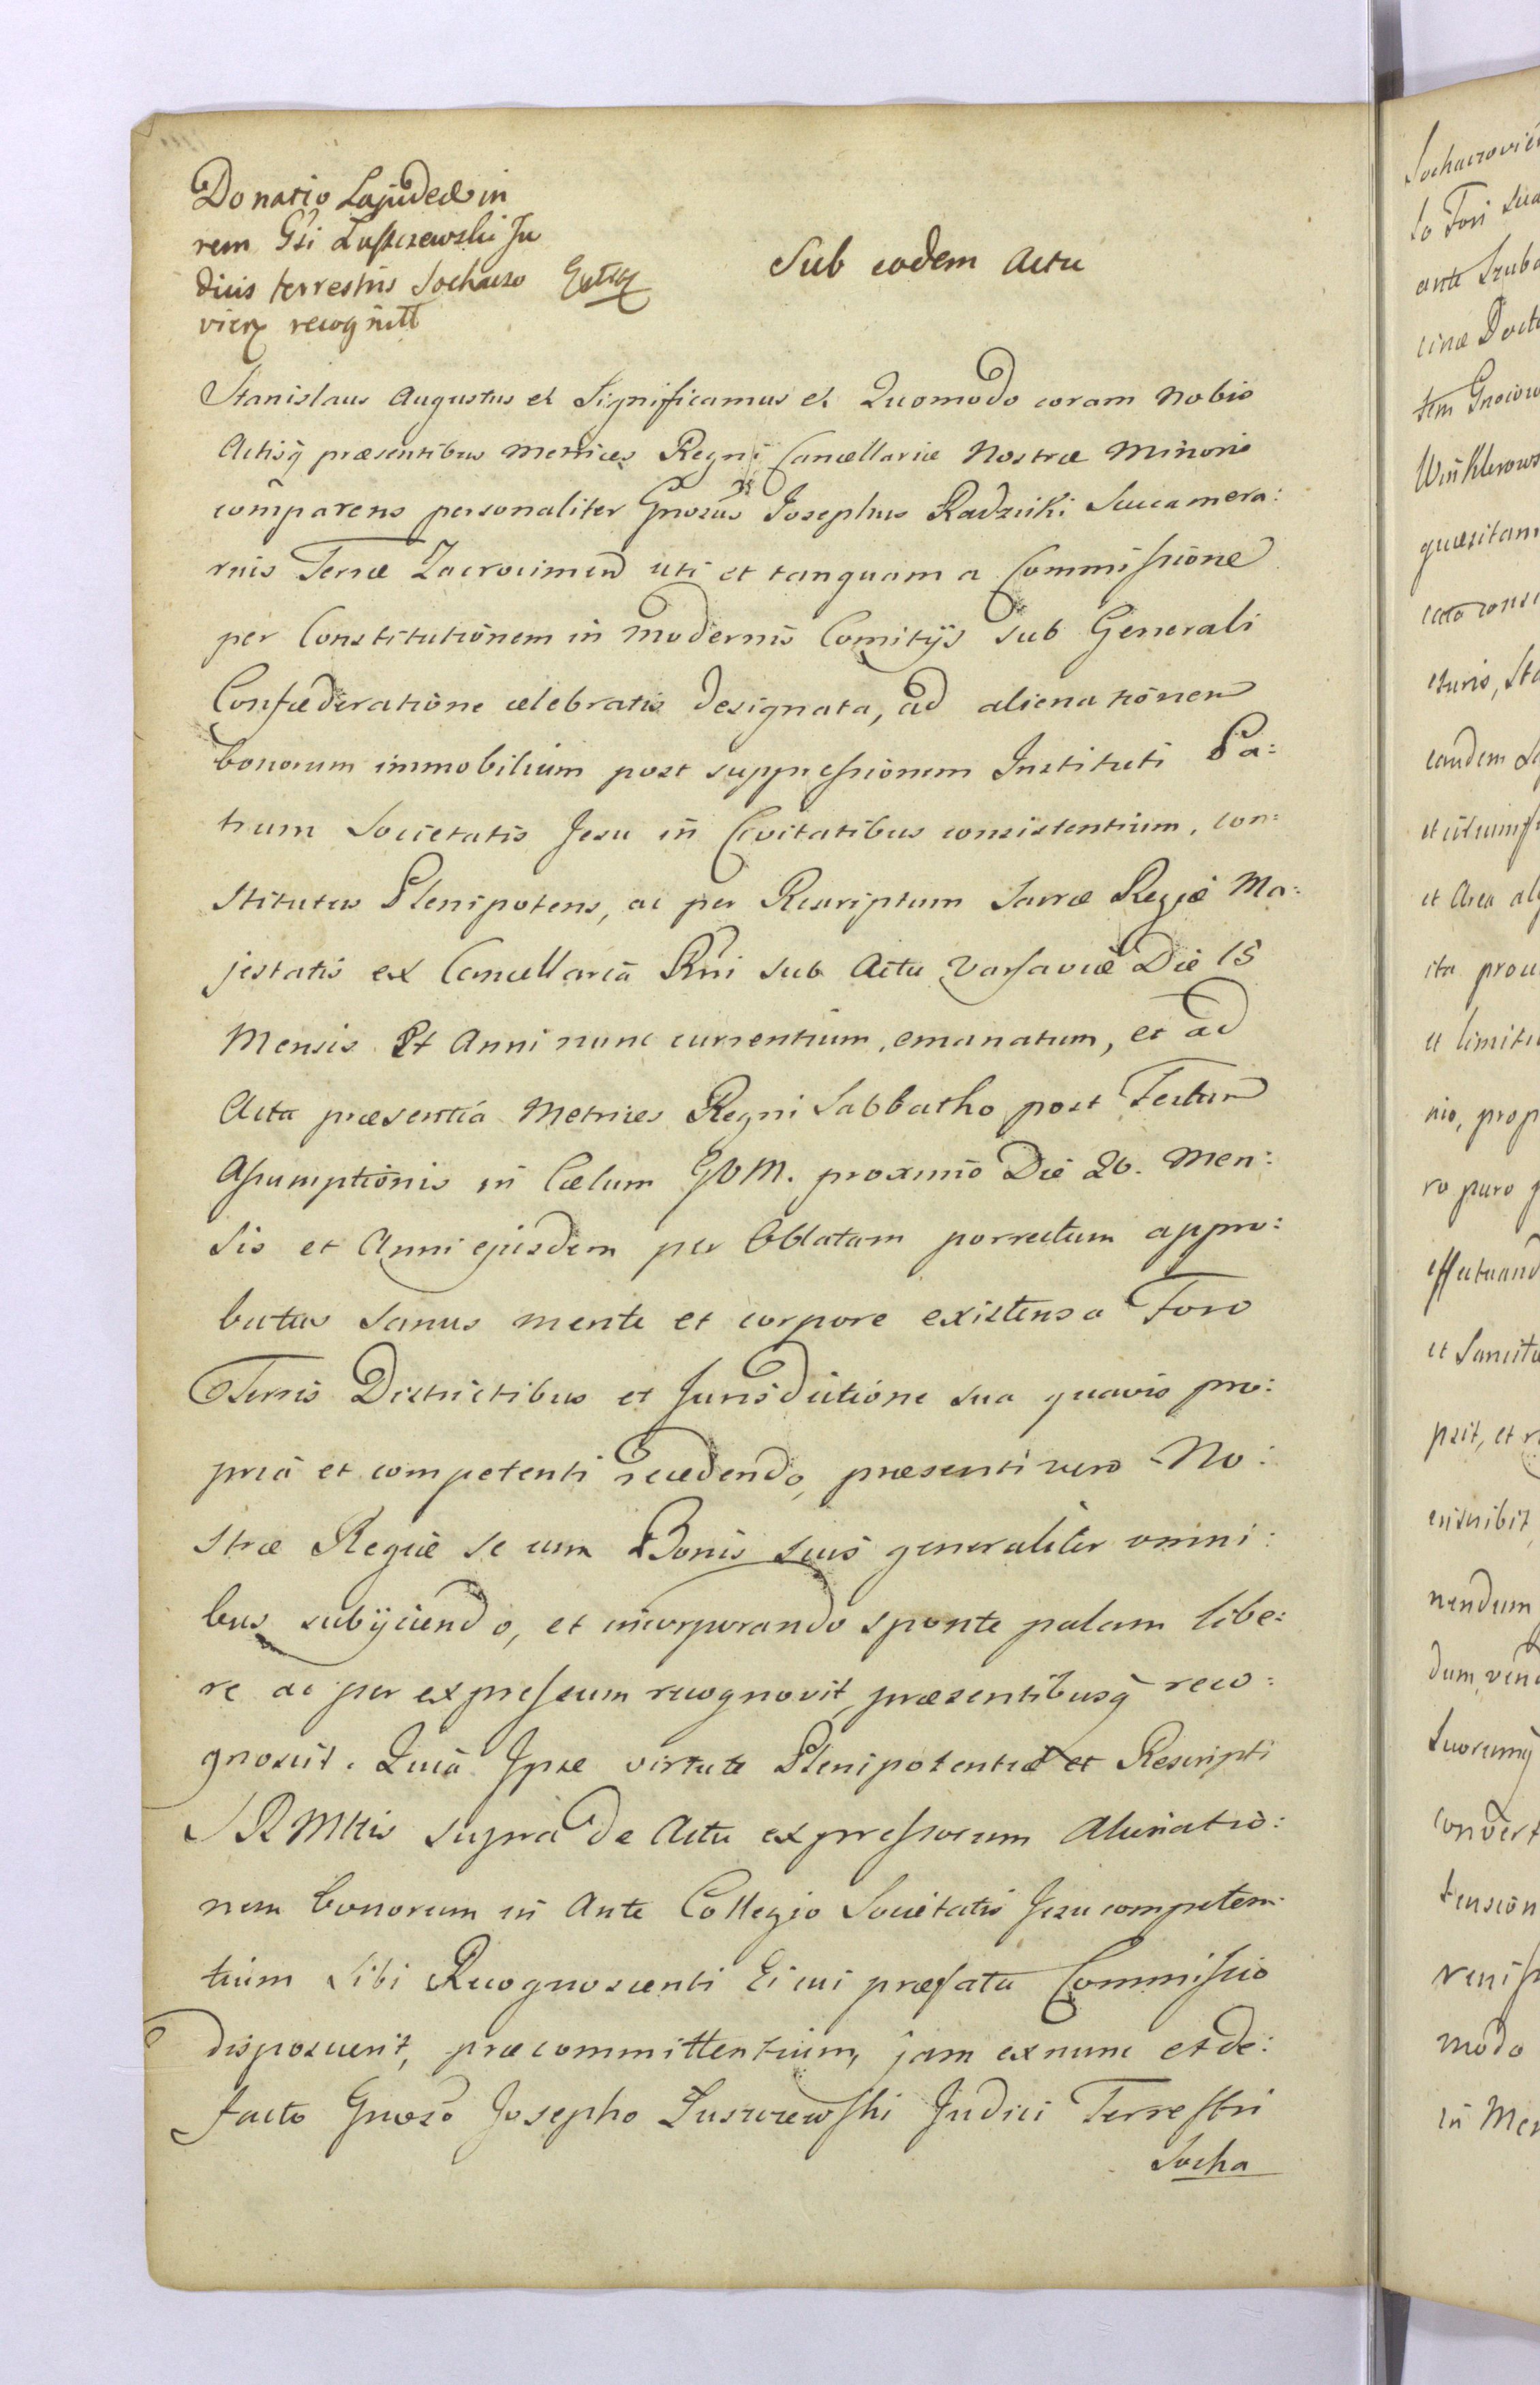 Donatio Lapideæ in
rem Gsi Luszczewski Ju
dicis terrestris Sochaczo
vien recognitt
Sub eodem Actu
Stanislaus Augustus et Significamus et Quomodo coram Nobis
Actisq præsentibus Metrices Regni Cancellariæ Nostræ Minoris
comparens personaliter Gnosus Josephus Radzicki Succamera:
rius Terræ Zacrocimen uti et tanquam a Commissione
per Constitutionem in modernis Comitijs sub Generali
Confæderatione celebratis designata, ad alienationem
bonorum immobilium post suppressionem Instituti Pa:
trum Societatis Jesu in Civitatibus consistentium, con:
stitutus Plenipotens, ac per Rescriptum Sacræ Regiæ Ma:
jestatis ex Cancellaria Rni sub Actu Varsaviæ Die 15
Mensis et Anni nunc currentium, emanatum, et ad
Acta præsentia Metrices Regni Sabbatho post Festum
Assumptionis in Cælum BVM. proximo Die 20. Men:
sis et Anni ejusdem per Oblatam porrectum appro:
batus sanus mente et corpore existens a Foro
Terris Districtibus et Jurisdictione sua quavis pro:
pria et competenti recedendo, præsenti vero No:
stræ Regiæ se cum Bonis suis generaliter omni:
bus subijciendo, et incorporando sponte palam libe:
re ac per expressum recognovit, præsentibusq reco:
gnoscit. Quia Ipse virtute Plenipotentiæ et Rescripti
SRMttis supra de Actu expressorum Alienatio:
nem bonorum in Ante Collegio Societatis Jesu competen
tium sibi Recognoscenti Ei cui præfata Commissio
disposuerit, præcommittentium, jam exnunc et de:
facto Gnoso Josepho Luszczewski Judici Terrestri
Socha
Sochaczovien
lo Fori sua
ante
cinæ
tem
quæsitam
eandem
et Area
ita prou
et limiti
nio, prop
ro puro
effectuand
et
psit, et
inscribit
nendum
dum, vend
suorumq
convert
tension
modo
in Men